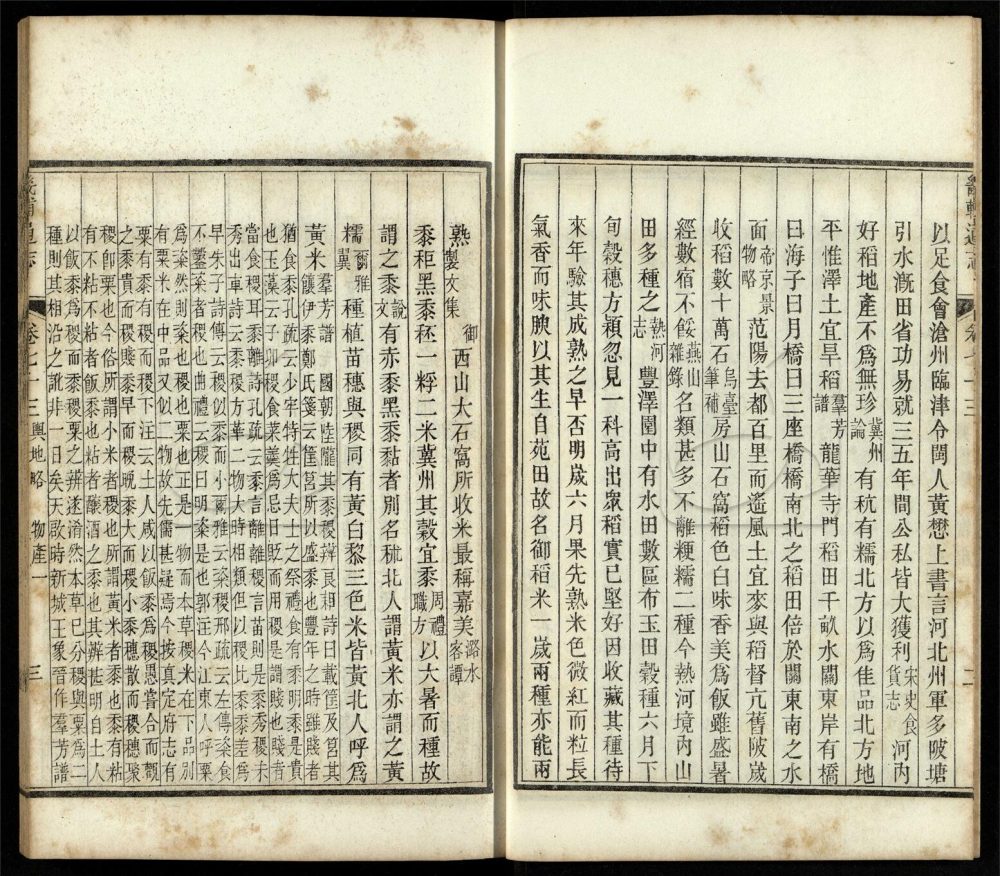 以足食會滄州臨津令閩人黃懋上書言河北州軍多陂塘
引水漑田省功易就三五年間公私皆大獲利宋史食貨志河內
好稻地產不爲無珍冀州論有秔有糯北方以爲佳品北方地
平惟澤土宜旱稻羣芳譜龍華寺門稻田千畝水關東岸有橋
曰海子曰月橋曰三座橋橋南北之稻田倍於關東南之水
面帝京景物略范陽去都百里而遙風土宜麥與稻督亢舊陂歲
收稻數十萬石烏臺筆補房山石窩稻色白味香美爲飯雖盛暑
經數宿不餒燕山雜錄名類甚多不離粳糯二種今熱河境內山
田多種之熱河志豐澤園中有水田數區布玉田穀種六月下
旬穀穗方穎忽見一科高出衆稻實已堅好因收藏其種待
來年驗其成熟之早否明歲六月果先熟米色微紅而粒長
氣香而味腴以其生自苑田故名御稻米一歲兩種亦能兩
熟御製文集西山大石窩所收米最稱嘉美潞水客譚
黍秬黑黍秠一稃二米冀州其穀宜黍周禮職方以大暑而種故
謂之黍說文有赤黍黑黍黏者別名秫北人謂黃米亦謂之黃
糯爾雅翼種植苗穗與稷同有黃白黎三色米皆黃北人呼爲
黃米羣芳譜 國朝陸隴其黍稷辨良耜詩曰載筐及筥其
饟伊黍鄭氏箋云筐筥所以盛黍也豐年之時雖賤者
猶食黍孔疏云少牢特牲大夫士之祭禮食有黍明黍是貴
也玉藻云子卯稷食菜羹爲忌日貶而用稷是謂賤也賤者
當食稷耳黍離詩孔疏云黍言離離稷言苗則是黍秀稷未
秀出車詩云黍稷方華二物大時相類但以稷比黍黍差爲
早朱子詩傳云稷似黍而小爾雅云粢稷邢疏云左傳粢食
不鑿粢者稷也曲禮云稷曰明粢是也郭注今江東人呼粟
爲粢然則粢也稷也粟也正是一物而本草稷米在下品別
有粟米在中品又似二物故先儒甚疑焉今按真定府志有
粟有黍有稷而稷下注云土人咸以飯黍爲稷愚嘗合而觀
之黍貴而稷賤黍早而稷晚黍大而稷小黍穗散而稷穗聚
稷卽粟也今俗所謂小米者稷也所謂黃米者黍也黍有粘
有不粘不粘者飯黍也粘者釀酒之黍也其辨甚明自土人
以飯黍爲稷而黍稷粟之辨遂淆然本草已分稷與粟爲二
種則其相沿之訛非一日矣天啟時新城王象晉作羣芳譜
卷七十三輿地略 物產一
三